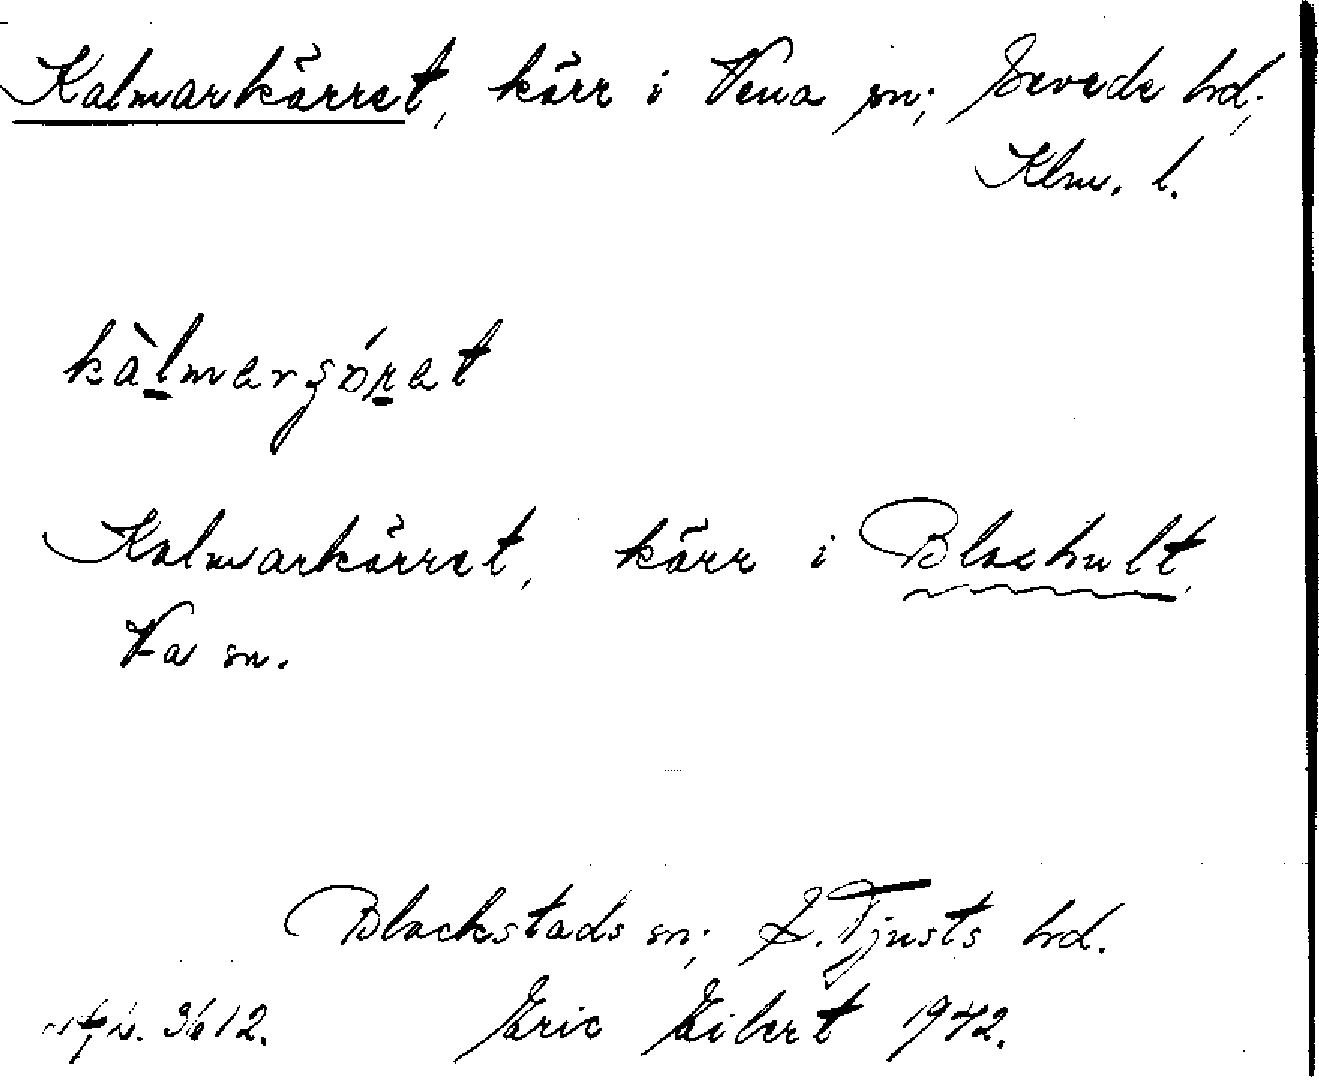 Kalmarkärret, kärr i Vena sn; Sevede hd;
Klm. l.
kàlmarʂǿrat
Kalmarkärret, kärr i Blaehult,
Va sn.
Blackstads sn; S. Tjusts hd.
3612. Eric Eibert 1942.